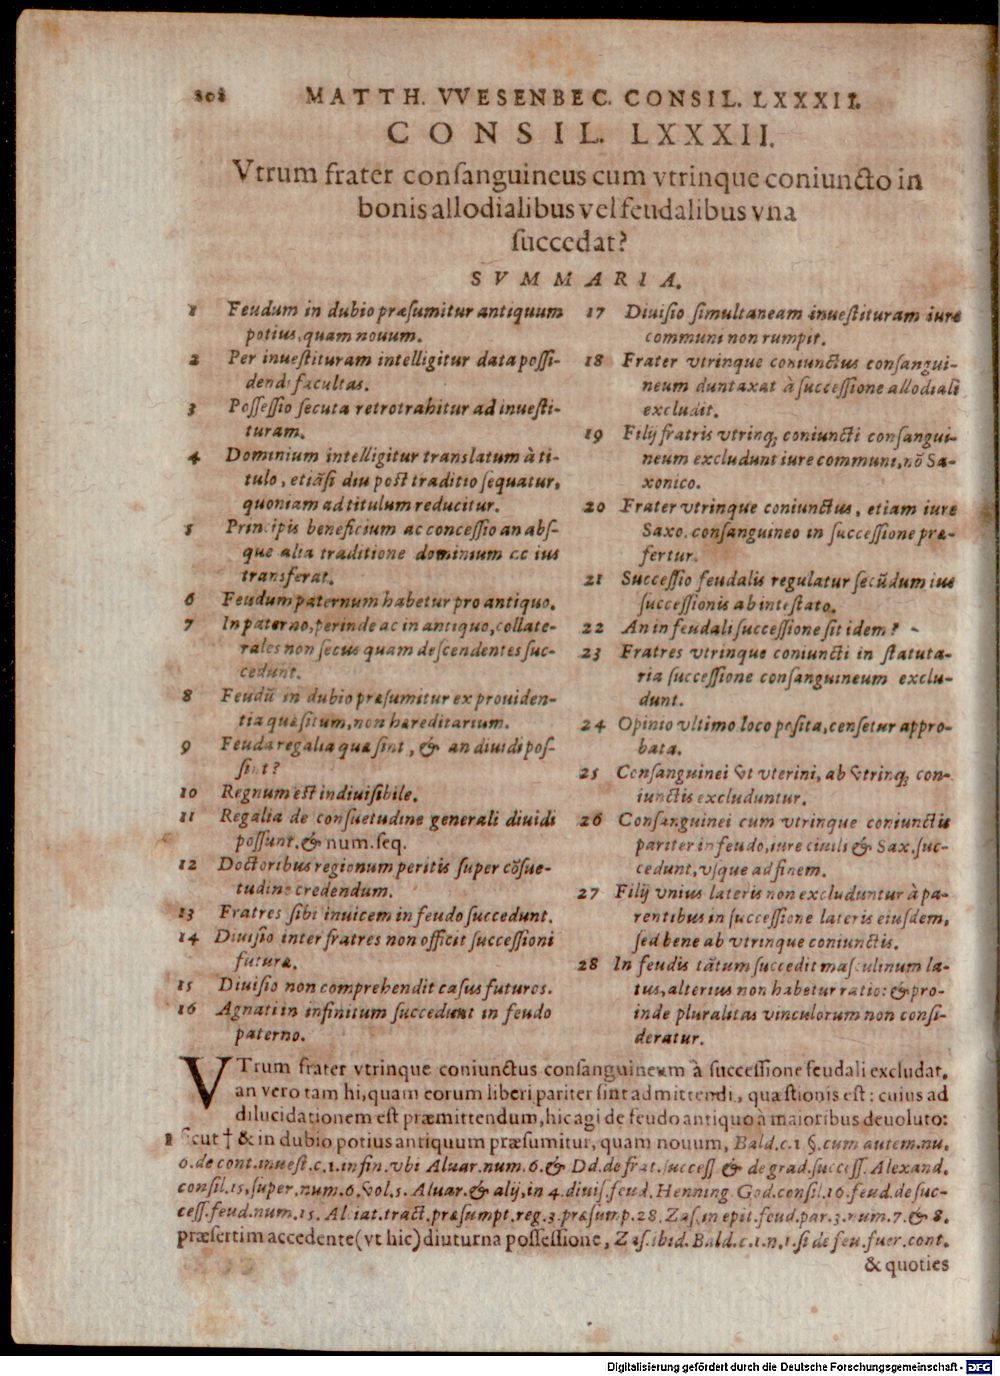 808 MATTH. VVESENBEC. CONSIL. LXXXII.
CONSIL. LXXXII.
Vtrum frater conſanguineus cum vtrinque coniuncto in
bonis allodialibus vel feudalibus vna
ſuccedat?
SVMMARIA.
1 Feudum in dubio præſumitur antiquum
potius, quam nouum.
2 Per inueſtituram intelligitur data poſſi-
dendi facultas.
3 Poſſeſſio ſecuta retrotrahitur ad inueſti-
turam.
4 Dominium intelligitur translatum à ti-
tulo, etiãſi diu poſt traditio ſequatur,
quoniam ad titulum reducitur.
5 Principis beneficium ac conceſſio an abſ-
que alia traditione dominium ac ius
transferat.
6 Feudum paternum habetur pro antiquo.
7 In paterno, perinde ac in antiquo, collate-
rales non ſecus quam deſcendentes ſuc-
cedunt.
8 Feudũ in dubio præſumitur ex prouiden-
tia quæſitum, non hæreditarium.
9 Feuda regalia quæ ſint, & an diuidi poſ-
ſint?
10 Regnum eſt indiuiſibile.
11 Regalia de conſuetudine generali diuidi
poſſunt. & num. ſeq.
12 Doctoribus regionum peritis ſuper cõſue-
tudine credendum.
13 Fratres ſibi inuicem in feudo ſuccedunt.
14 Diuiſio inter fratres non officit ſucceſſioni
futuræ.
15 Diuiſio non comprehendit caſus futuros.
16 Agnati in infinitum ſuccedunt in feudo
paterno.
17 Diuiſio ſimultaneam inueſtituram iure
communi non rumpit.
18 Frater vtrinque coniunctus conſangui-
neum duntaxat à ſucceſſione allodiali
excludit.
19 Filij fratris vtrinq; coniuncti conſangui-
neum excludunt iure communi, nõ Sa-
xonico.
20 Frater vtrinque coniunctus, etiam iure
Saxo. conſanguineo in ſucceſſione præ-
fertur.
21 Succeſſio feudalis regulatur ſecũdum ius
ſucceſſionis ab inteſtato.
22 An in feudali ſucceſſione ſit idem?
23 Fratres vtrinque coniuncti in ſtatuta-
ria ſucceſſione conſanguineum exclu-
dunt.
24 Opinio vltimo loco poſita, cenſetur appro-
bata.
25 Conſanguinei vt vterini, ab vtrinq; con-
iunctis excluduntur.
26 Conſanguinei cum vtrinque coniunctis
pariter in feudo, iure ciuili & Sax. ſuc-
cedunt, vſque ad finem.
27 Filij vnius lateris non excluduntur à pa-
rentibus in ſucceſſione lateris eiuſdem,
ſed bene ab vtrinque coniunctis.
28 In feudis tãtum ſuccedit maſculinum la-
tus, alterius non habetur ratio: & pro-
inde pluralitas vinculorum non conſi-
deratur.
VTrum frater vtrinque coniunctus conſanguineum à ſucceſſione feudali excludat,
an vero tam hi, quam eorum liberi pariter ſint admittendi, quæſtionis eſt: cuius ad
dilucidationem eſt præmittendum, hic agi de feudo antiquo à maioribus deuoluto:
1 ſicut † & in dubio potius antiquum præſumitur, quam nouum, Bald. c. 1 §. cum autem. nu.
6. de cont. inueſt. c. 1. in fin. vbi Aluar. num. 6. & Dd. de frat. ſucceſſ & de grad. ſucceſſ. Alexand.
conſil. 15. ſuper. num. 6. vol. 5. Aluar. & alij, in 4. diuiſ. feud. Henning God. conſil. 16. feud. de ſuc-
ceſſ. feud. num. 15. Alciat. tract. præſumpt. reg. 3. præſump. 28. Zaſ. in epit. feud. par. 3. num. 7. & 8.
præſertim accedente (vt hic) diuturna poſſeſſione, Zaſ. ibid. Bald. c. 1. n. 1. ſi de feu. fuer. cont.
& quoties
Digitalisierung gefördert durch die Deutsche Forschungsgemeinschaft - DFG